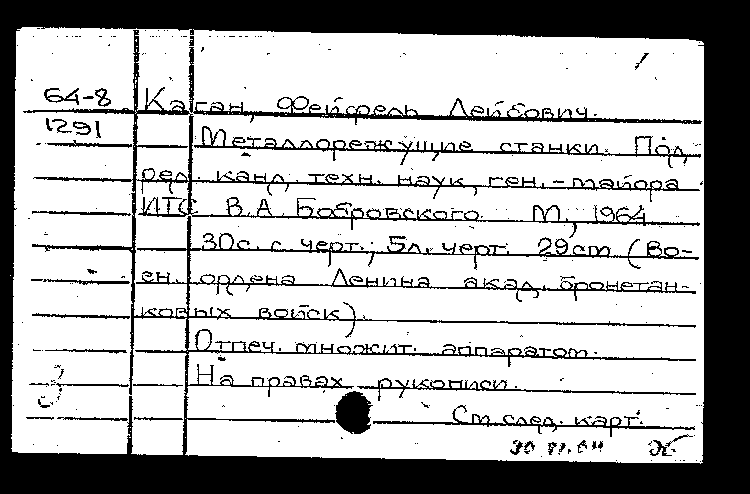 64-8 Каган, Фейфель Лейбович.
1291 Металлорежущие станки. Под
ред. канд. техн. наук, ген.-майора
ИТС В.А. Бобровского. М., 1964
30с. с черт.; 5л. черт. 29см (Во-
ен. ордена Ленина акад. бронетан-
ковых войск).
Отпеч. множит. аппаратом.
На правах рукописи.
3
См. след. карт.